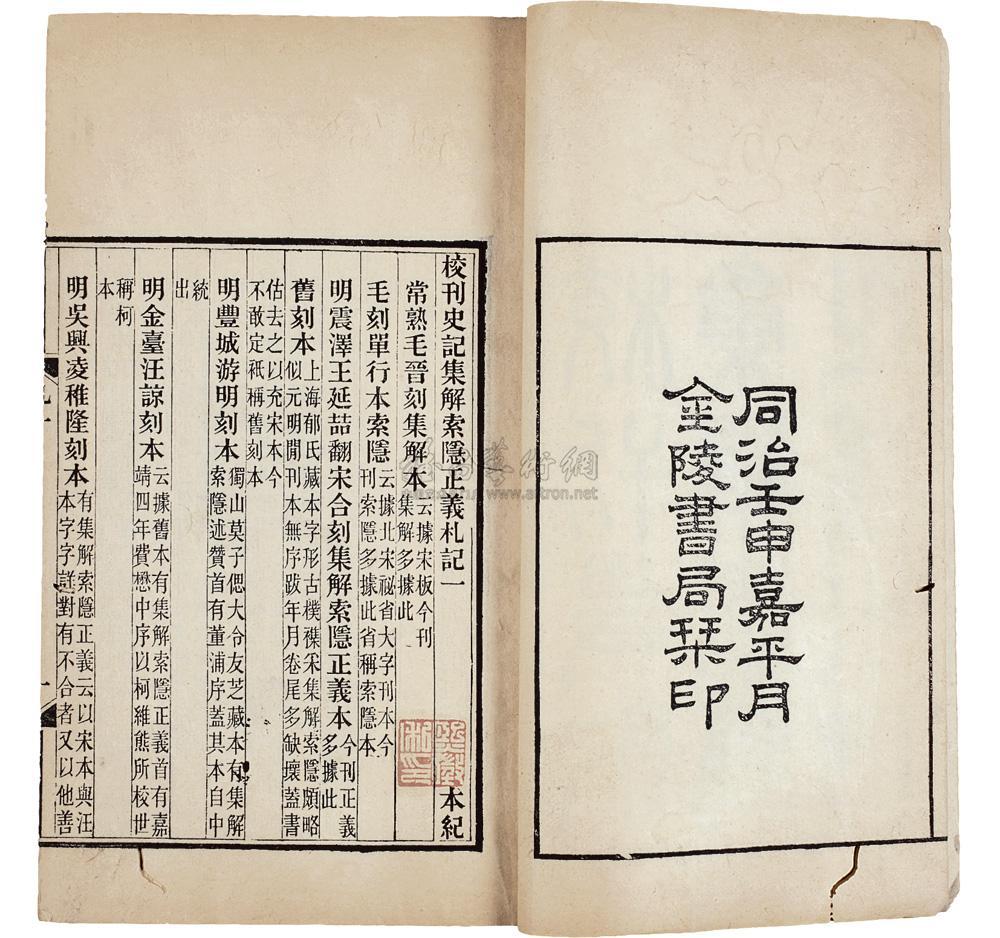 同治壬申嘉平月
金陵書局栞印
校刊史記集解索隱正義札記一
本紀
常熟毛晉刻集解本
云據宋板今刊
集解多據此
毛刻單行本索隱
云據北宋祕省大字刊本今
刊索隱多據此省稱索隱本
明震澤王延喆翻宋合刻集解索隱正義本
今刊正義
多據此
舊刻本
上海郁氏藏本字形古樸襍采集解索隱頗略
似元明閒刊本無序跋年月卷尾多缺壞蓋書
估去之以充宋本今
不敢定衹稱舊刻本
明豐城游明刻本
獨山莫子偲大令友芝藏本有集解
索隱述贊首有董浦序蓋其本自中
統
出
明金臺汪諒刻本
云據舊本有集解索隱正義首有嘉
靖四年費懋中序以柯維熊所校世
稱柯
本
明吳興凌稚隆刻本
有集解索隱正義云以宋本與汪
本字字讎對有不合者又以他善
www.artron.net